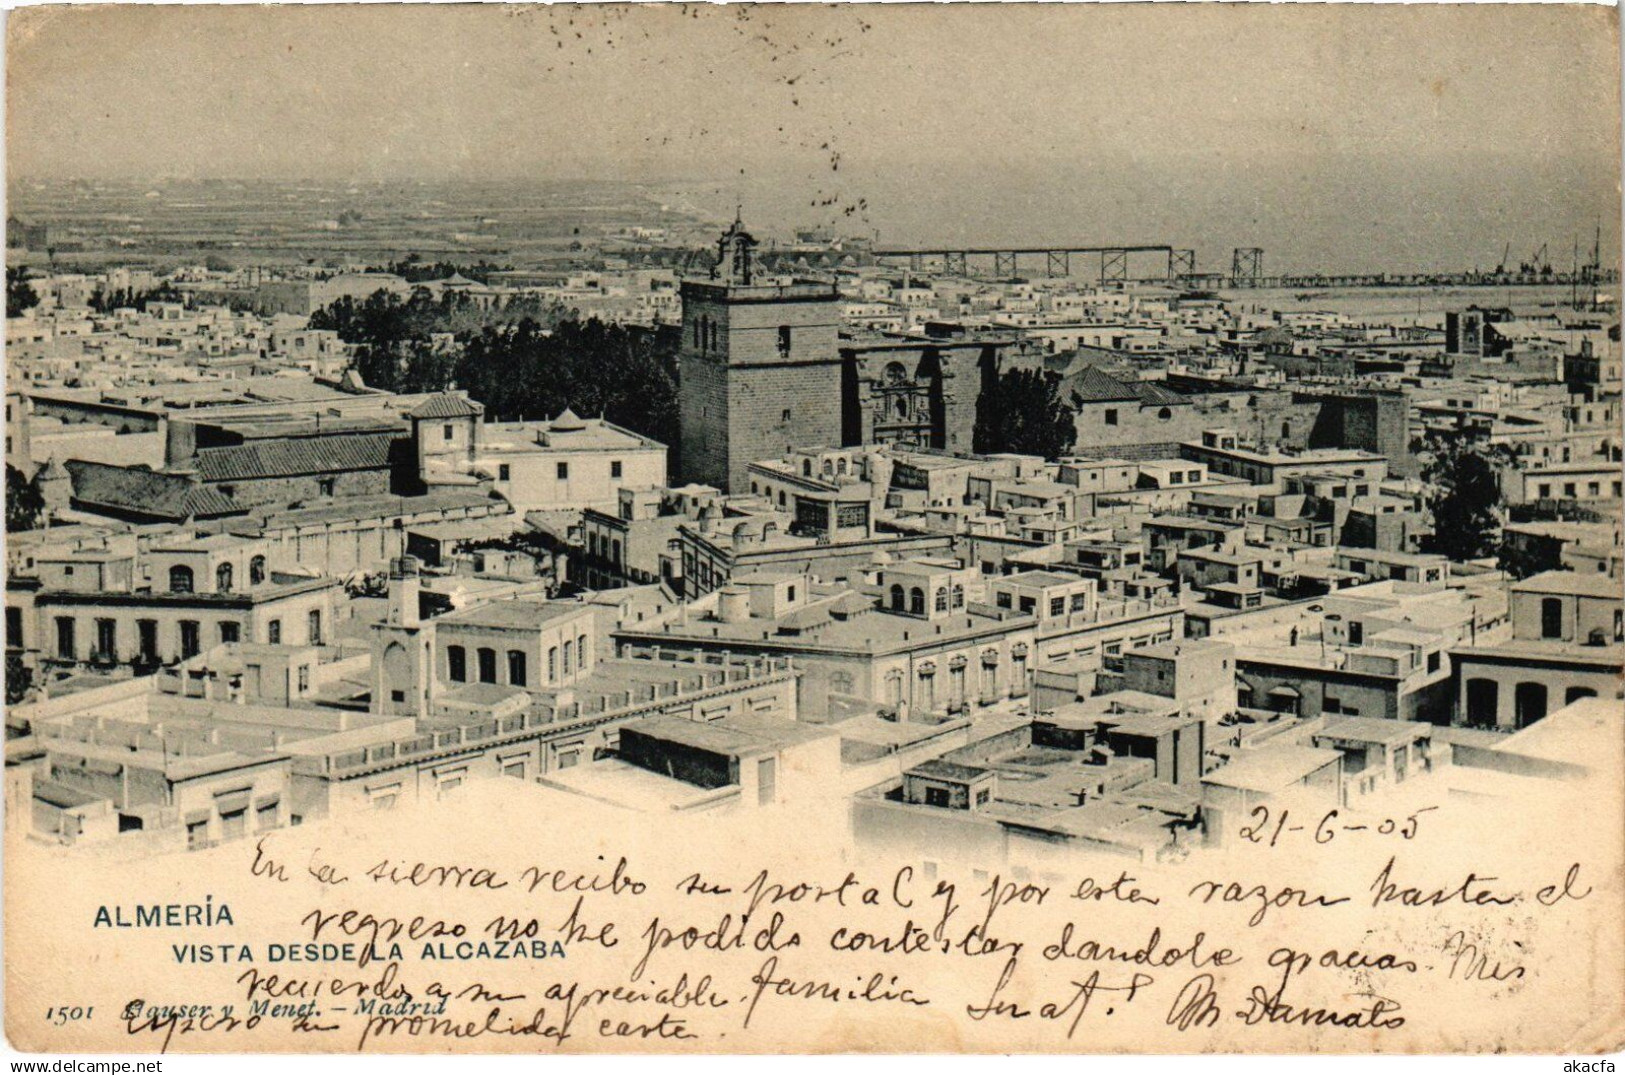 21-6-05
En la sierra recibo su postal y por esta razon hasta el
ALMERÍA
regreso no he podido contestar dandole gracias. Mis
VISTA DESDE LA ALCAZABA
recuerdos a su apreciable familia
1501 Hauser y Menet.—Madrid
Espero su prometida carta.
Su af.º M Damato
akacfa